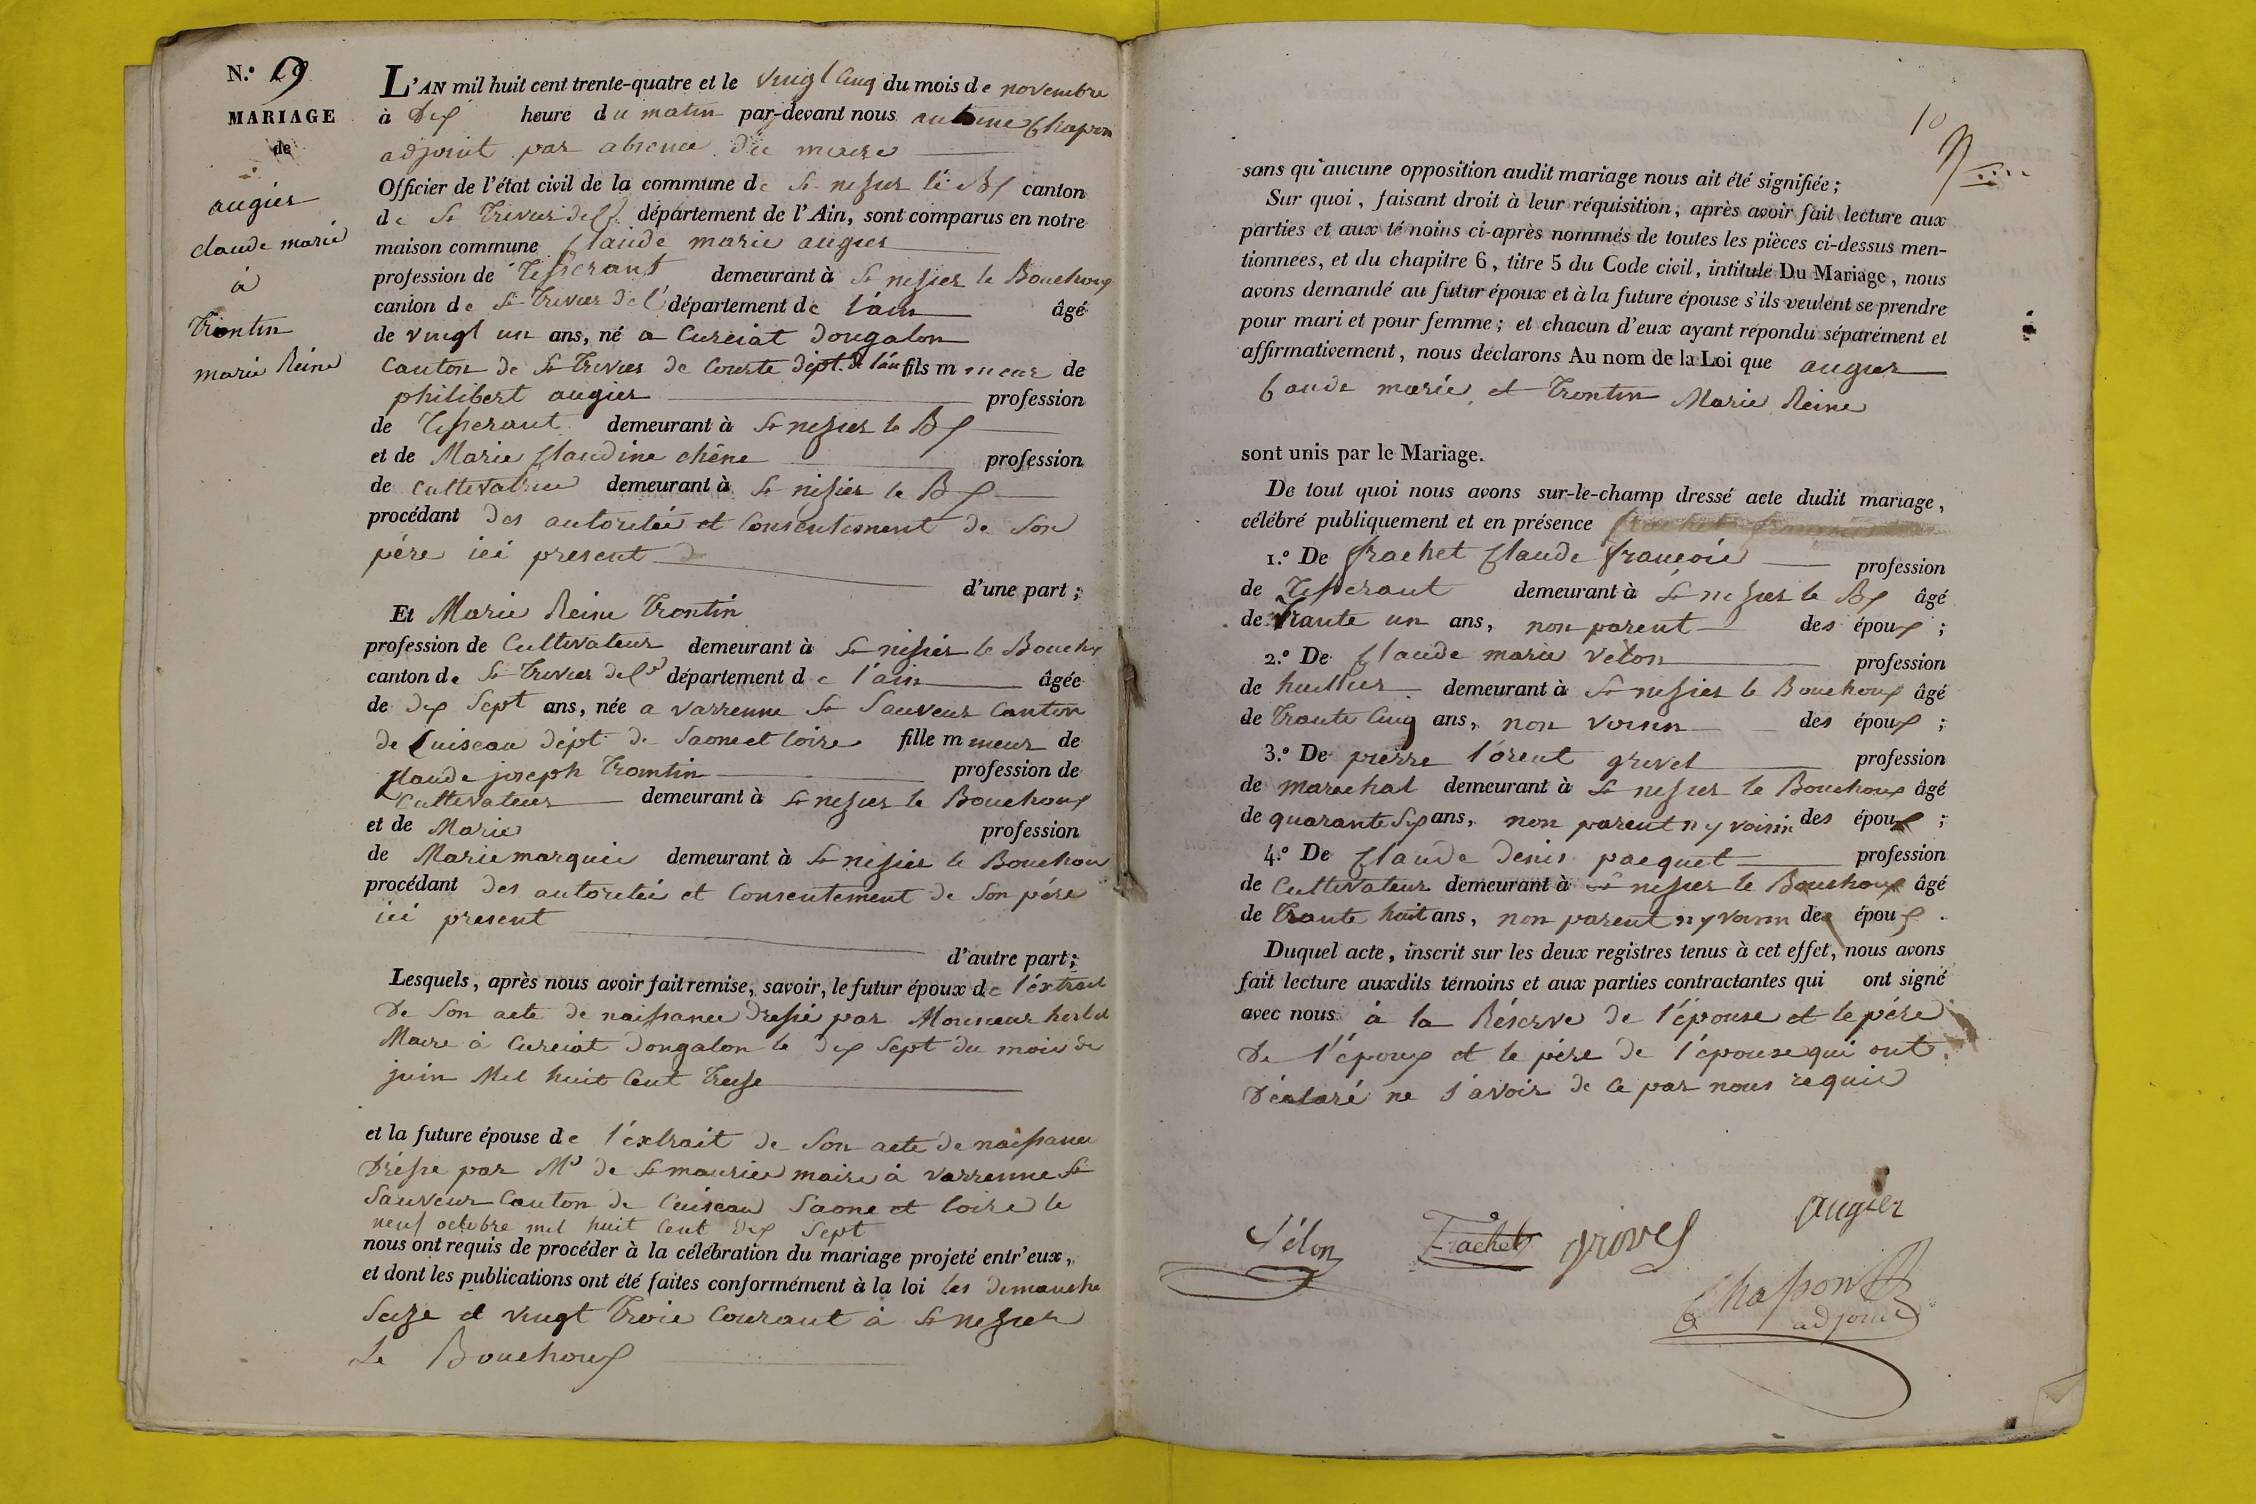 N.º 9
MARIAGE
de
augier
claude marie
à
Trontin
marie Reine
L'AN mil huit cent trente-quatre et le vingt Cinq du mois de novembre
à Dix heure du matin par-devant nous antoine Chapon
adjoint par absence du maire
Officier de l'état civil de la commune de St nizier le Bx canton
de St Trivier de Cs département de l'Ain, sont comparus en notre
maison commune Claude marie augier
profession de Tisserant demeurant à St nizier le Bouchoux
canton de St Trivier de Cs département de l'ain âgé
de vingt un ans, né a Curciat dongalon
Canton de St Trivier de Courte dépt. de l'ain fils mineur de
philibert augier profession
de Tisserant demeurant à St nizier le Bx
et de Marie Claudine chêne profession
de cultivatrice demeurant à St nizier le Bx
procédant des autoritée et Consentement de Son
pére ici present
d'une part ;
Et Marie Reine Trontin
profession de Cultivateur demeurant à St nizier le Bouchx
canton de St Trivier de Cs département de l'ain âgée
de dix Sept ans, née a varrenne St Sauveur Canton
de Cuiseau dépt. de Saone et loire fille mineur de
Claude joseph Trontin profession de
Cultivateur demeurant à St nizier le Bouchoux
et de Marie profession
de Marie marquie demeurant à St nizier le Bouchou
procédant des autoritée et Consentement de Son pére
ici present
d'autre part ;
Lesquels, après nous avoir fait remise, savoir, le futur époux de l'éxtrait
De Son acte de naissance Dressé par Monsieur herbet
Maire à Curciat Dongalon le dix Sept du mois de
juin Mil huit Cent Treize
et la future épouse de l'éxtrait de Son acte de naissance
Dréssé par Mr de St maurice maire à varrenne St
Sauveur Canton de Cuiseau Saone et loire le
neuf octobre mil huit Cent dix Sept
nous ont requis de procéder à la célébration du mariage projeté entr'eux,
et dont les publications ont été faites conformément à la loi les dimanche
Seize et vingt Trois Courant à St nizier
Le Bouchoux
10
sans qu'aucune opposition audit mariage nous ait été signifiée ;
Sur quoi, faisant droit à leur réquisition, après avoir fait lecture aux
parties et aux té noins ci-après nommés de toutes les pièces ci-dessus men-
tionnées, et du chapitre 6, titre 5 du Code civil, intitulé Du Mariage, nous
avons demandé au futur époux et à la future épouse s'ils veulent se prendre
pour mari et pour femme ; et chacun d'eux ayant répondu séparément et
affirmativement, nous déclarons Au nom de la Loi que augier
Claude marie, et Trontin Marie Reine
sont unis par le Mariage.
De tout quoi nous avons sur-le-champ dressé acte dudit mariage,
célébré publiquement et en présence
1.º De frachet Claude françois profession
de Tisserant demeurant à St nizier le Bx âgé
de Trante un ans, non parent des époux ;
2.º De Claude marie vélon profession
de huillier demeurant à St nizier le Bouchoux âgé
de Trante Cinq ans, non voisin des époux ;
3.º De pierre l'orent grivel profession
de marechal demeurant à St nizier le Bouchoux âgé
de quarante Six ans, non parent n y voisin des époux ;
4.º De Claude denis pacquet profession
de Cultivateur demeurant à St nizier le Bouchoux âgé
de Trante huit ans, non parent n y voisin des époux .
Duquel acte, inscrit sur les deux registres tenus à cet effet, nous avons
fait lecture auxdits témoins et aux parties contractantes qui ont signé
avec nous à la Réserve de l'épouse et le pére
De l'époux et le pére de l'épouse qui ont
Déclaré ne s'avoir de ce par nous requis
Vélon Frachet grivel augier
Chapon
adjoint